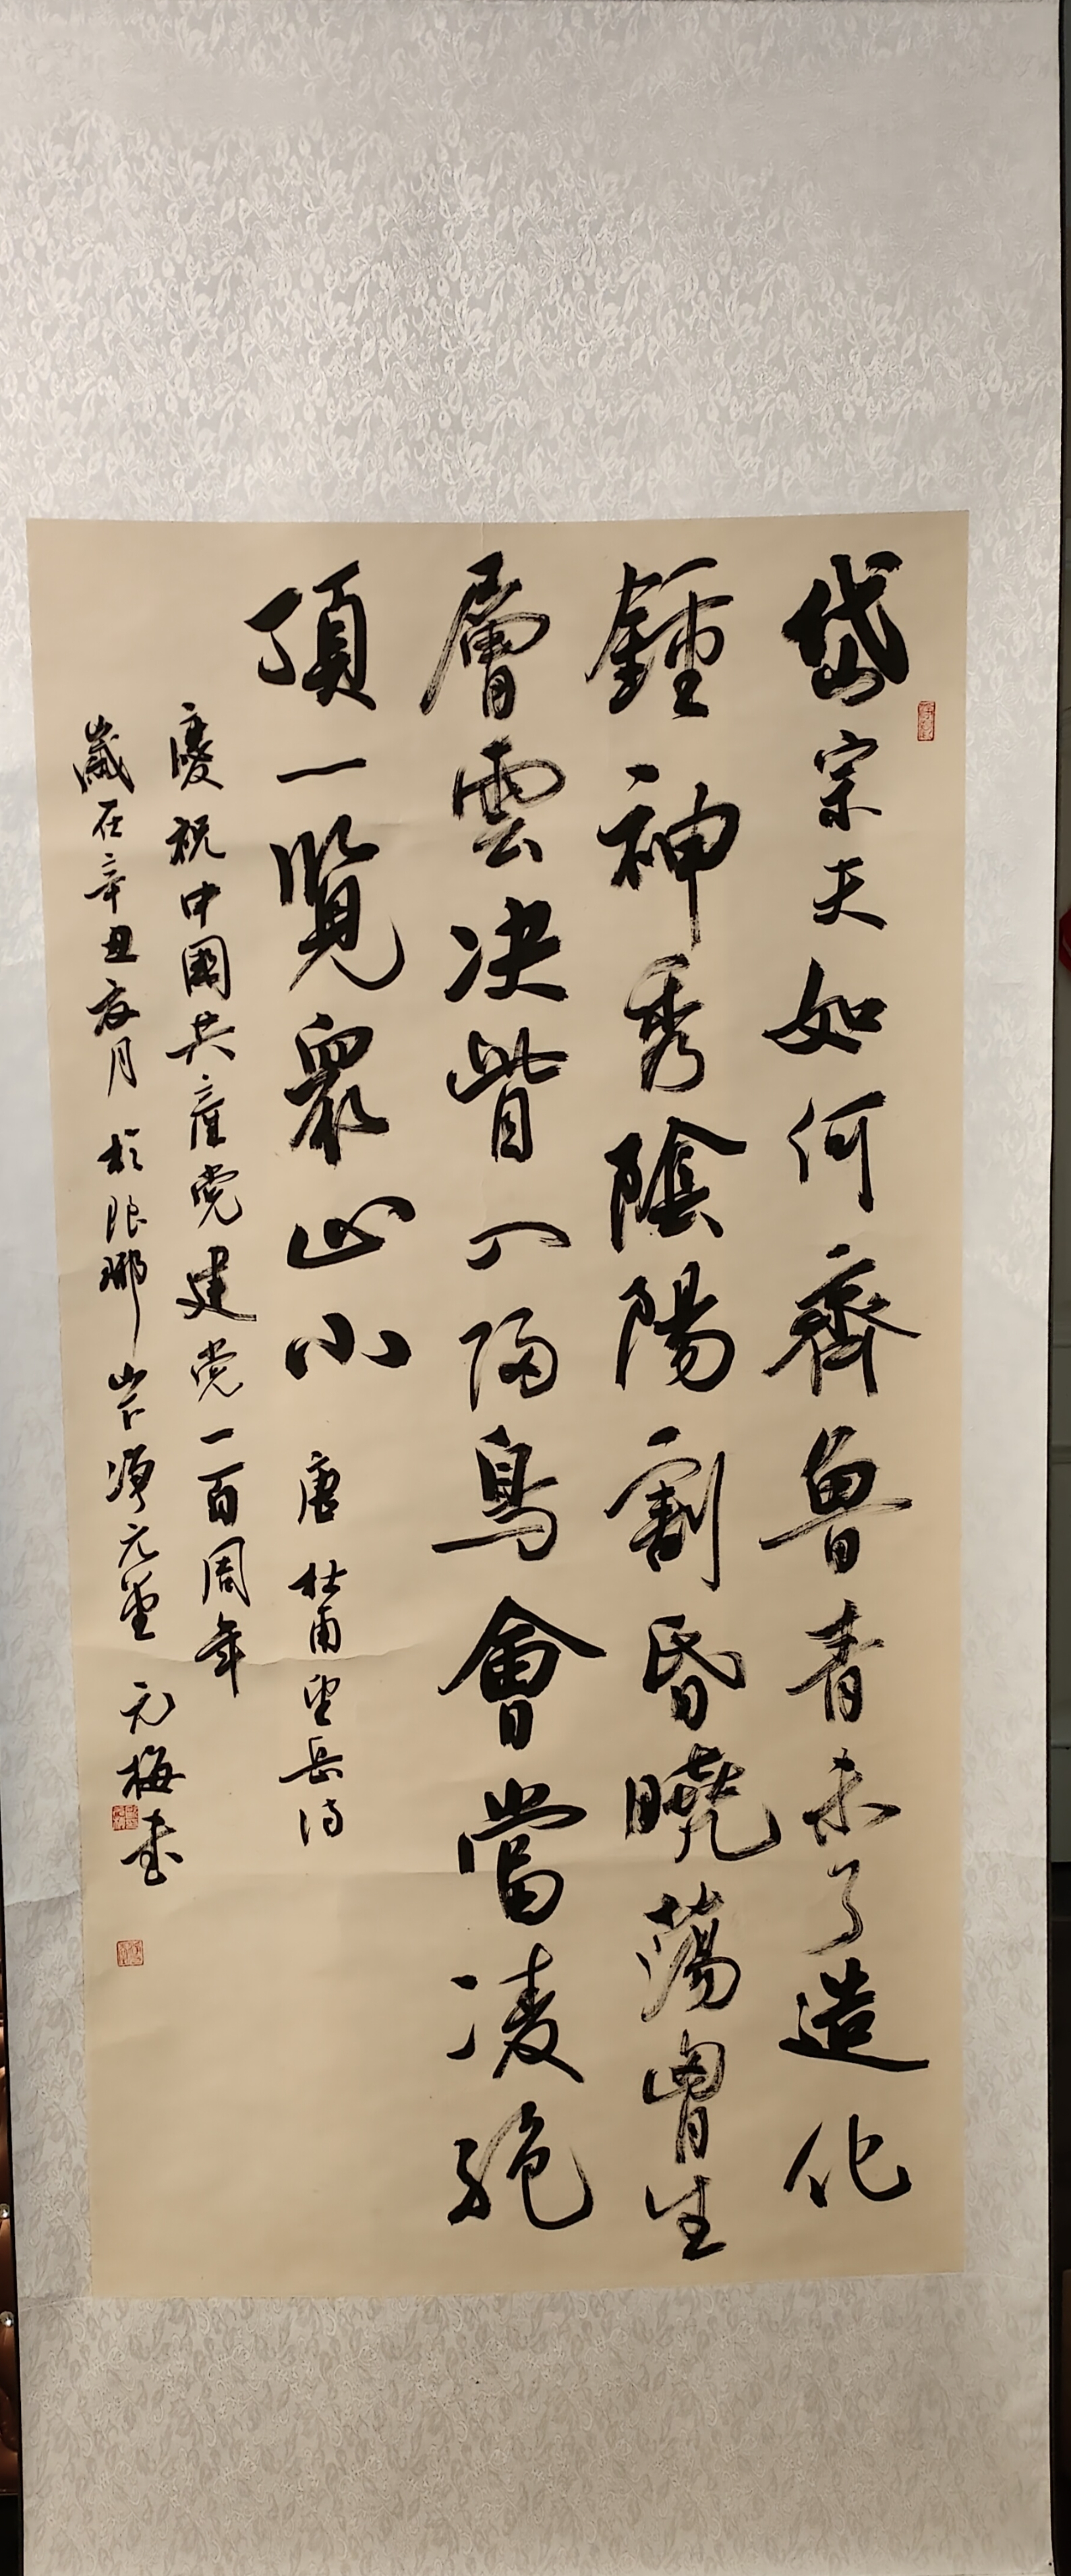 岱宗夫如何齊魯青未了造化
鍾神秀陰陽割昏曉蕩胷生
層雲决眥入歸鳥會當凌絕
頂一覽衆山小 唐 杜甫望岳詩
慶祝中國共產党建党一百周年
歲在辛丑月於琅琊 元堂 元梅書